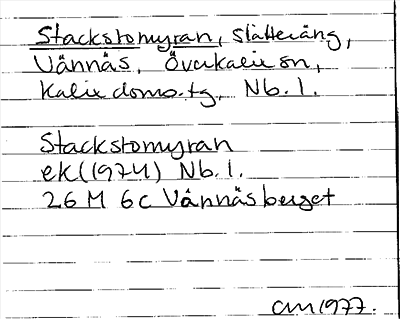 Stackstomyran, Slåtteräng,
Vännäs, Överkalix sn,
Kalix doms.tg, Nb. l.
Stackstomyran
ek (1974) Nb. l.
26 M 6c Vännäsberget
CM 1977.